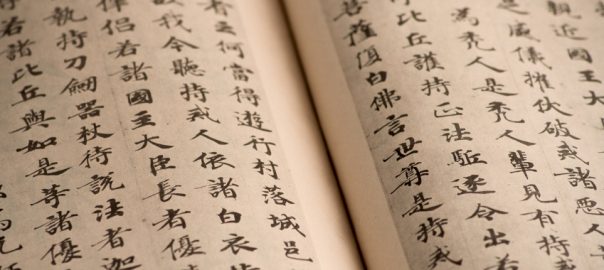 親近國王大
是威儀摧伏破戒諸惡人
為禿人是禿人輩見有持
比丘護持正法駈逐令出若
菩薩復白佛言世尊是持戒
者云何當得遊行村落城邑
故我今聽持戒人依諸白衣
侶若諸國王大臣長者優
執持刀劒器杖侍說法者迦
若諸比丘與如是等諸優